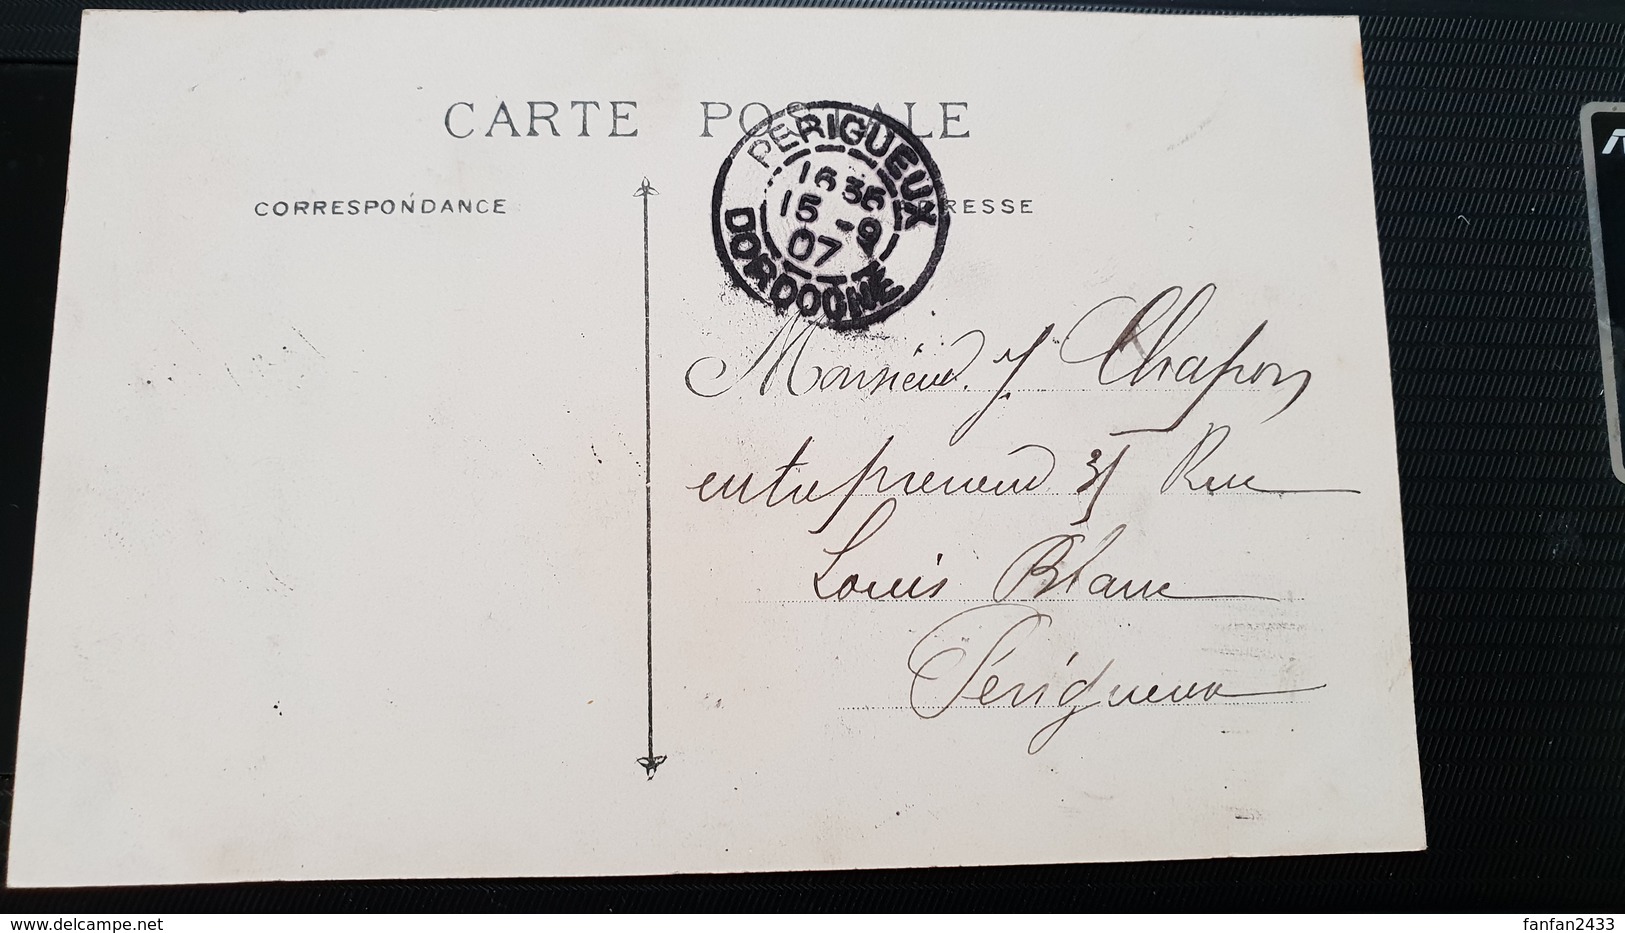 CARTE POSTALE
CORRESPONDANCE
RESSE
PERIGUEUX
16 36
15 -9
07
DORDOGNE
Monsieur J Chapon
entrepreneur 31 Rue
Louis Blanc
Périgueux
delcampe.net
fanfan2433